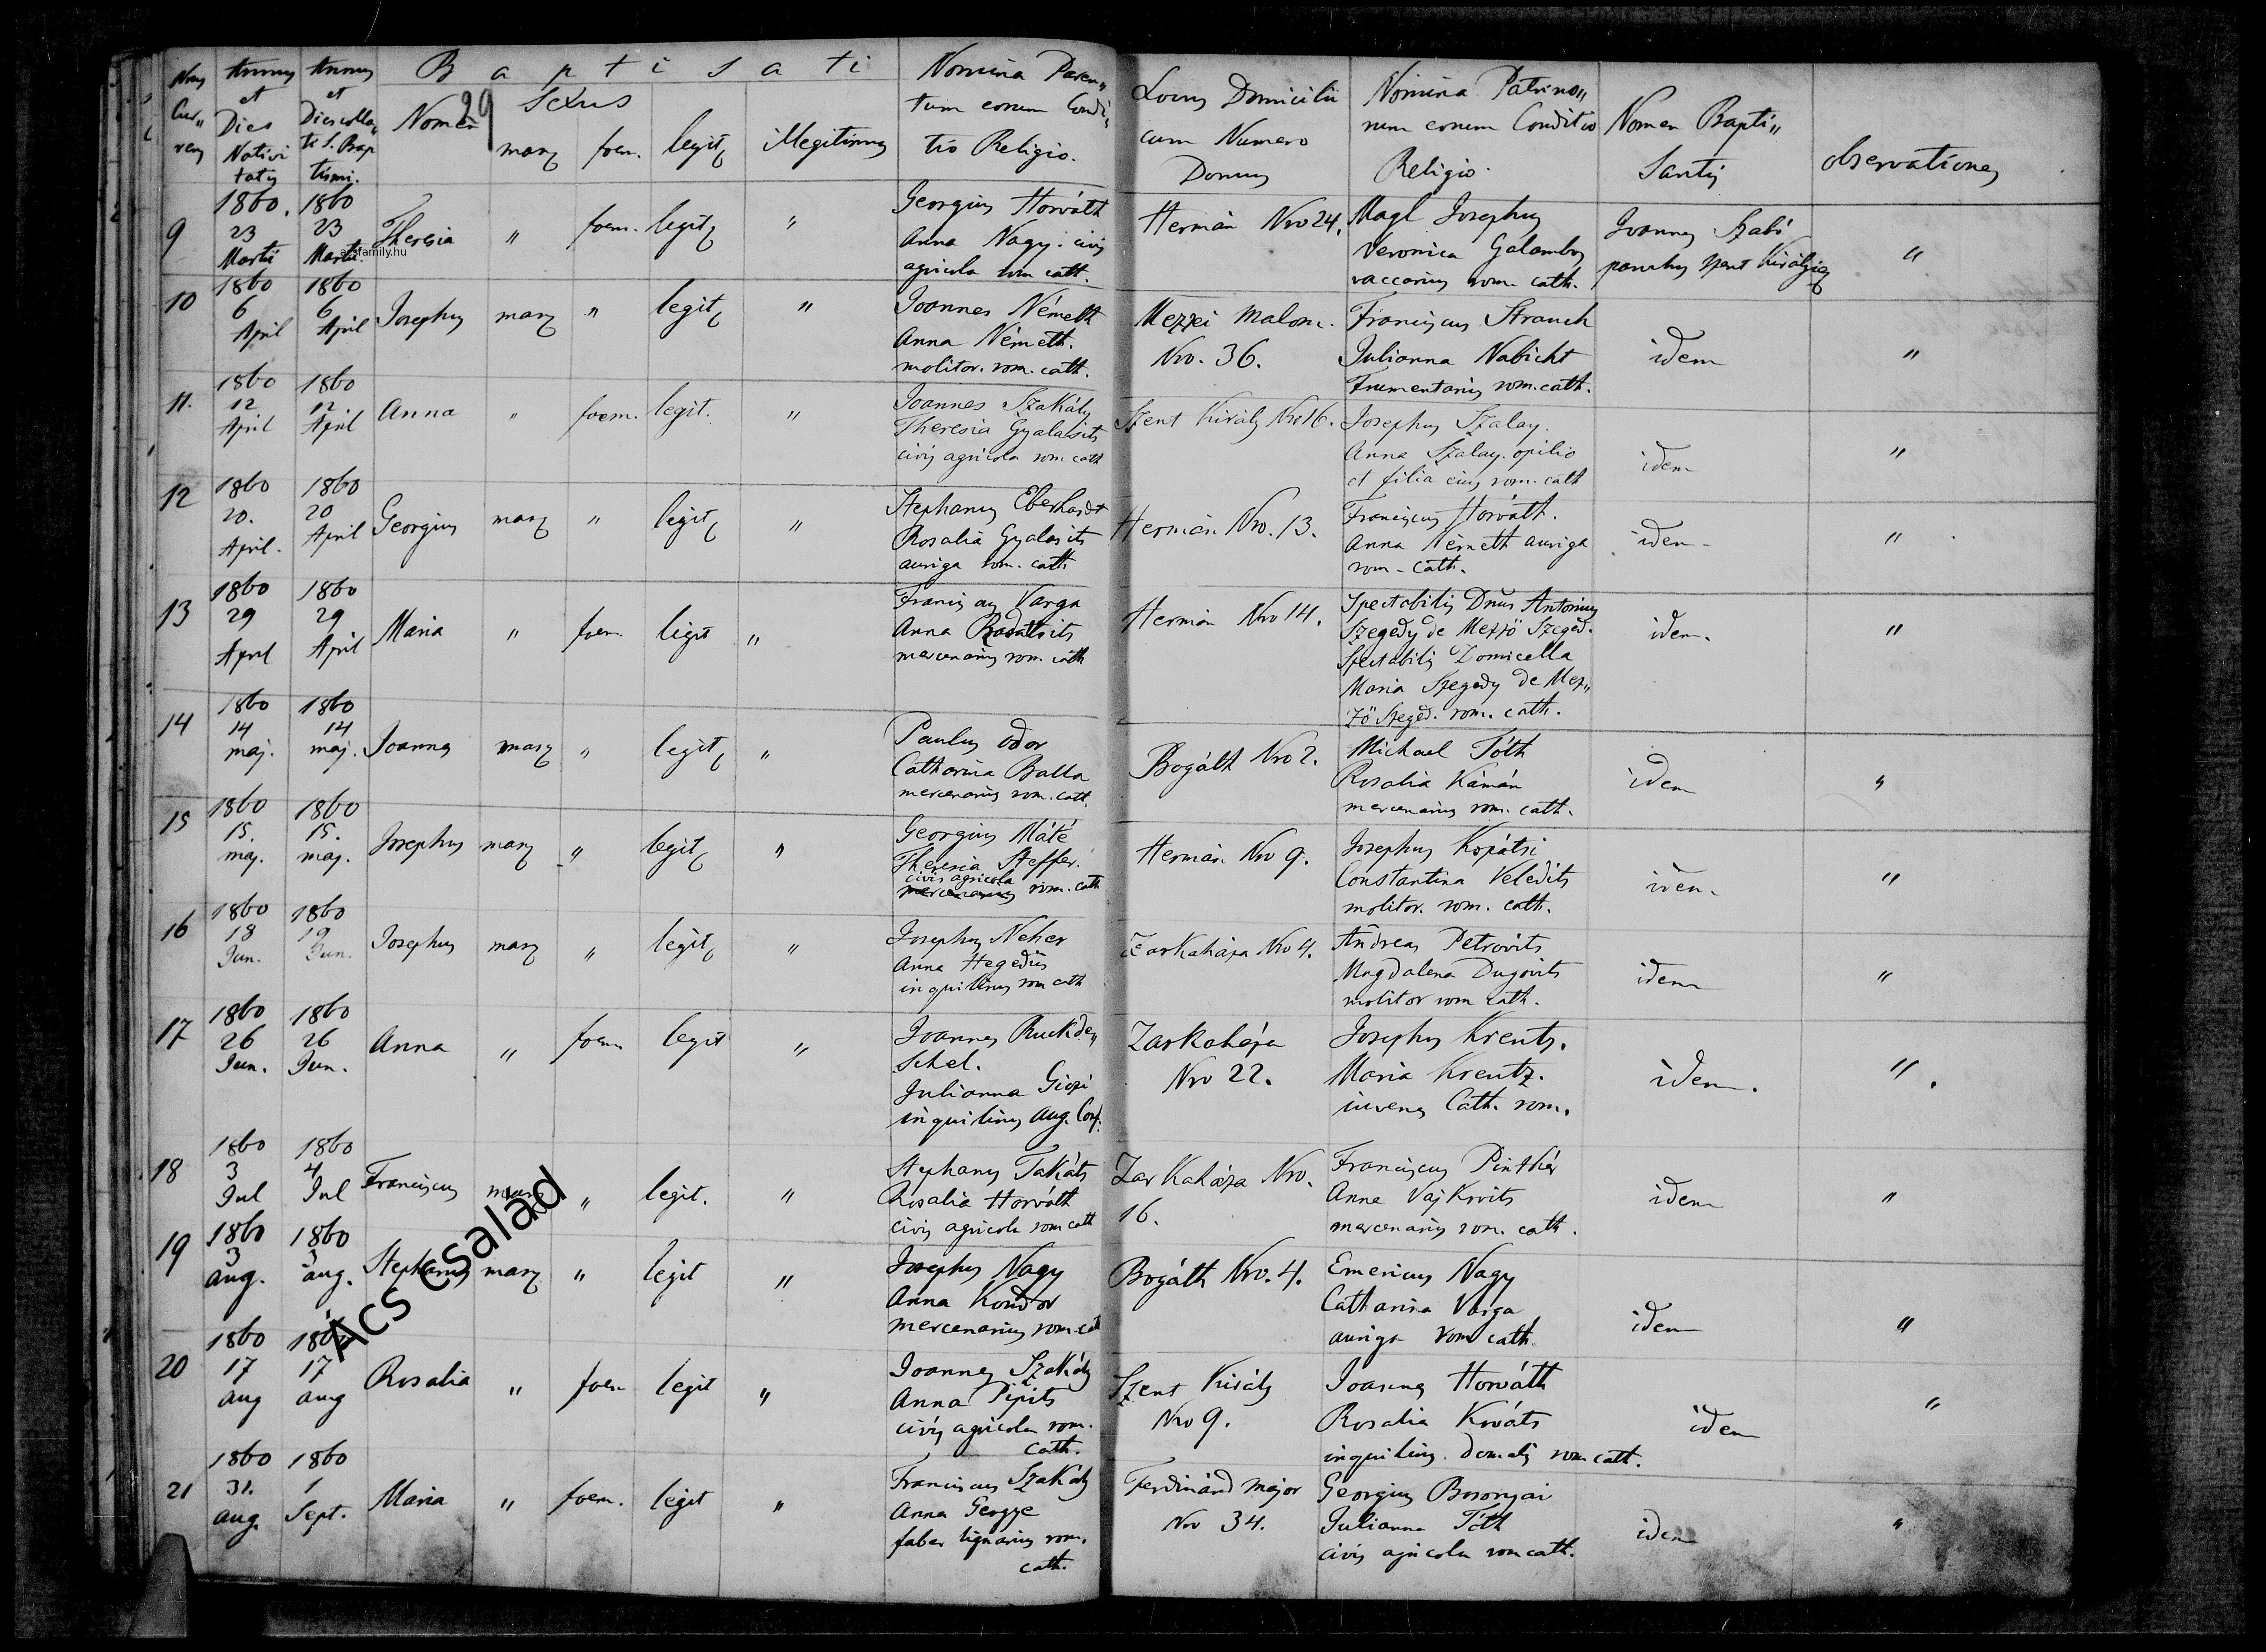 Nrus Currens
Annus et Dies Nativitatis
Annus et Dies collati S. Baptismi.
Baptisati
29
Nomen
Sexus
masc foem. legit illegitimus
Nomina Paren„
tum eorum Condi„
tio Religio.
Locus Domicilii
cum Numero
Domus
Nomina Patrino„
rum eorum Conditio
Religio.
Nomen Bapti„
santis
observationes
9 1860. 23 Martii 1860 23 Martii. Theresia " foem. legit "
acsfamily.hu
Georgius Horváth
Anna Nagy. civis
agricola rom cath.
Hermán Nro 24.
Magl Josephus
Veronica Galambos
vaccarius rom. cath.
Joannes Szabó
parochus Szent Királyiensis
"
10 1860 6 April 1860 6 April Josephus masc " legit "
Joannes Németh
Anna Németh.
molitor. rom. cath.
Mezzei malom.
Nro. 36.
Franciscus Strauch
Julianna Nabicht
Frumentarius rom. cath.
idem "
11. 1860 12 April 1860 12 April Anna " foem. legit. "
Joannes Szakály
Theresia Gyalaisits
civis agricola rom cath
Szent Király Nro 16.
Josephus Szalay.
Anna Szalay. opilio
et filia eius rom. cath
idem "
12 1860 20. April. 1860 20 April Georgius masc " legit "
Stephanus Eberhardt
Rosalia Gyalaisits
auriga rom. cath
Hermán Nro. 13.
Franciscus Horváth.
Anna Németh auriga
rom. cath.
idem "
13 1860 29 April 1860 29 April Maria " foem. legit "
Franciscus Varga
Anna Badatsits
mercenarius rom cath
Hermán Nro 14.
Spectabilis Dnus Antonius
Szegedy de Mezzö Szeged.
Spectabilis Domicella
Maria Szegedy de Mez„
zö Szeged. rom. cath.
idem. "
14 1860 14 maj. 1860 14 maj. Joannes masc " legit "
Paulus Odor
Catharina Balla
mercenarius rom. cath.
Bogáth Nro 2.
Michael Tóth
Rosalia Kámán
mercenarius rom. cath.
idem "
15 1860 15. maj. 1860 15. maj. Josephus masc " legit "
Georgius Máté
Theresia Steffer.
civis agricola
mercenarius rom. cath
Hermán Nro 9.
Josephus Kopátsi
Constantina Veledits
molitor. rom. cath.
idem. "
16 1860 18 Jun. 1860 19 Jun. Josephus masc " legit "
Josephus Neher
Anna Hegedüs
inquilinus rom cath
Zarkaháza Nro 4.
Andreas Petrovits
Magdalena Dugovits
molitor rom cath.
idem "
17 1860 26 Jun. 1860 26 Jun. Anna " foem legit "
Joannes Ruckde„
schel.
Julianna Giczi
inquilinus aug. Conf.
Zarkaháza
Nro 22.
Josephus Kreutz.
Maria Kreutz.
iuvenes Cath. rom.
idem. "
18 1860 3 Jul 1860 4 Jul Franciscus masc " legit. "
Stephanus Takáts
Rosalia Horváth
civis agricola rom cath
Zarkaháza Nro.
16.
Franciscus Pinthér
Anna Vajkovits
mercenarius rom. cath.
idem "
19 1860 3 aug. 1860 3 aug. Stephanus masc " legit "
Josephus Nagy
Anna Kondor
mercenarius rom. cath
Bogáth Nro. 4.
Emericus Nagy
Catharina Varga
auriga rom cath
idem "
Ács család
20 1860 17 aug 1860 17 aug Rosalia " foem legit "
Joannes Szakály
Anna Pipits
civis agricola rom.
cath.
Szent Király
Nro 9.
Joannes Horváth
Rosalia Kováts
inquilinus. domalis rom cath.
idem "
21 1860 31. aug. 1860 1 Sept. Maria " foem. legit "
Franciscus Szakály
Anna Gergye
faber lignarius rom.
cath.
Ferdinánd major
Nro 34.
Georgius Bosonyai
Julianna Tóth
civis agricola rom cath.
idem "